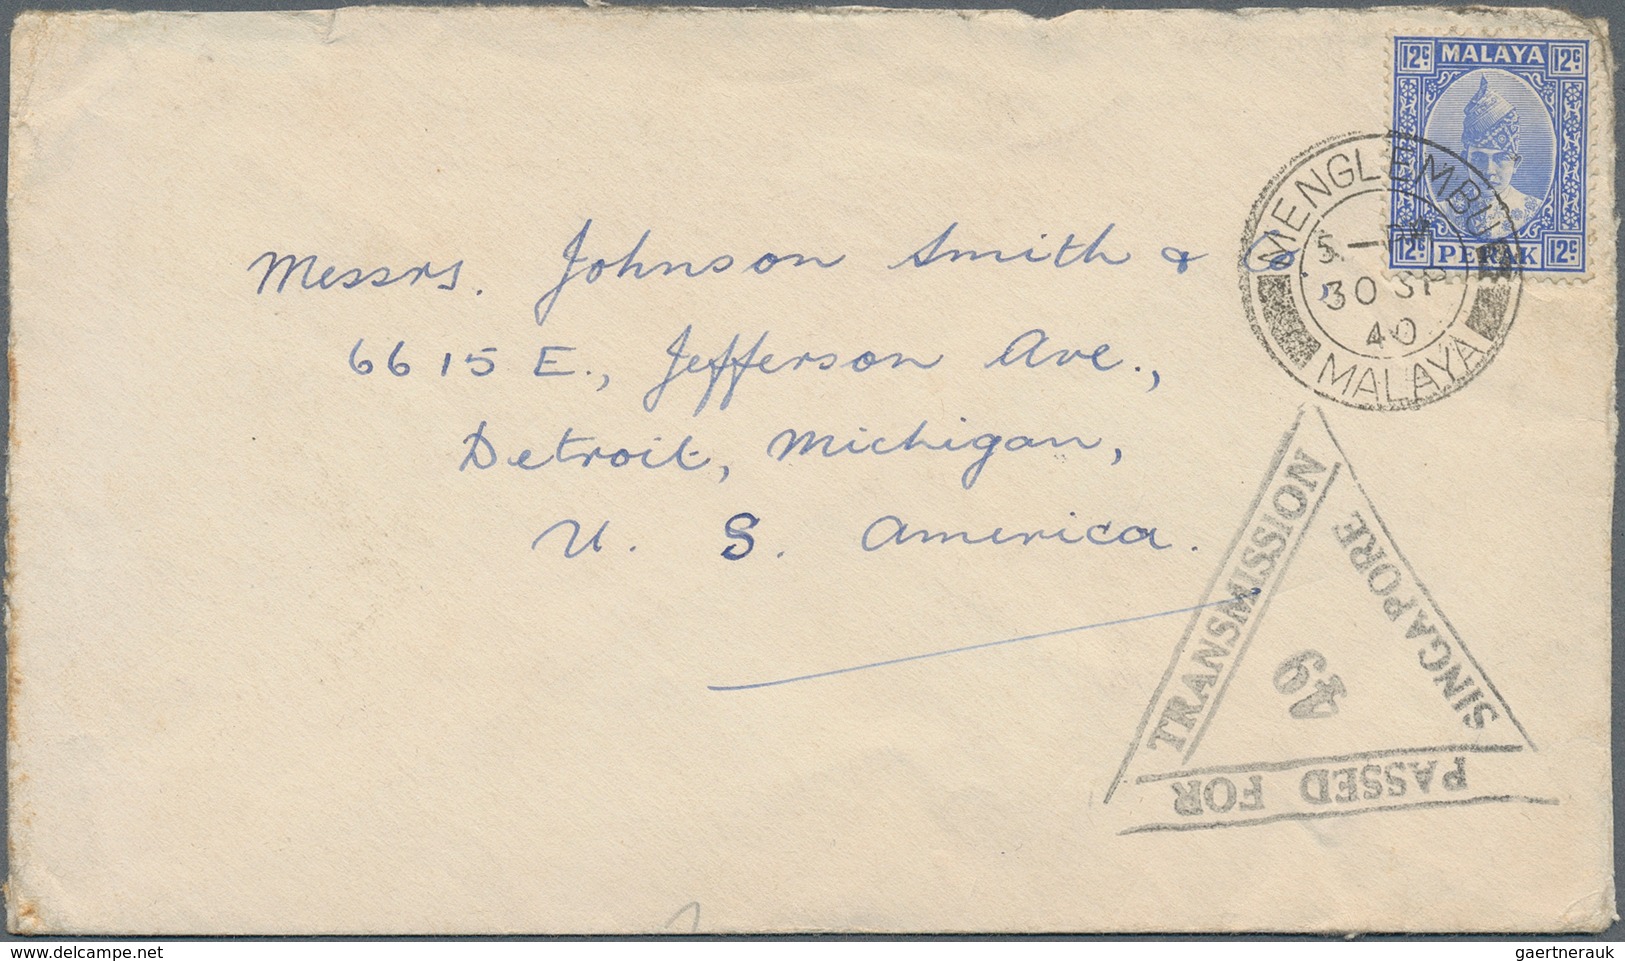 12c MALAYA 12c
12c PERAK 12c
MENGLEMBU
5 - PM
30 SP
40
MALAYA
Messrs. Johnson Smith & Co.,
6615 E., Jefferson Ave.,
Detroit, Michigan,
U. S. America.
PASSED FOR
TRANSMISSION
SINGAPORE
49
www.delcampe.net
gaertnerauk